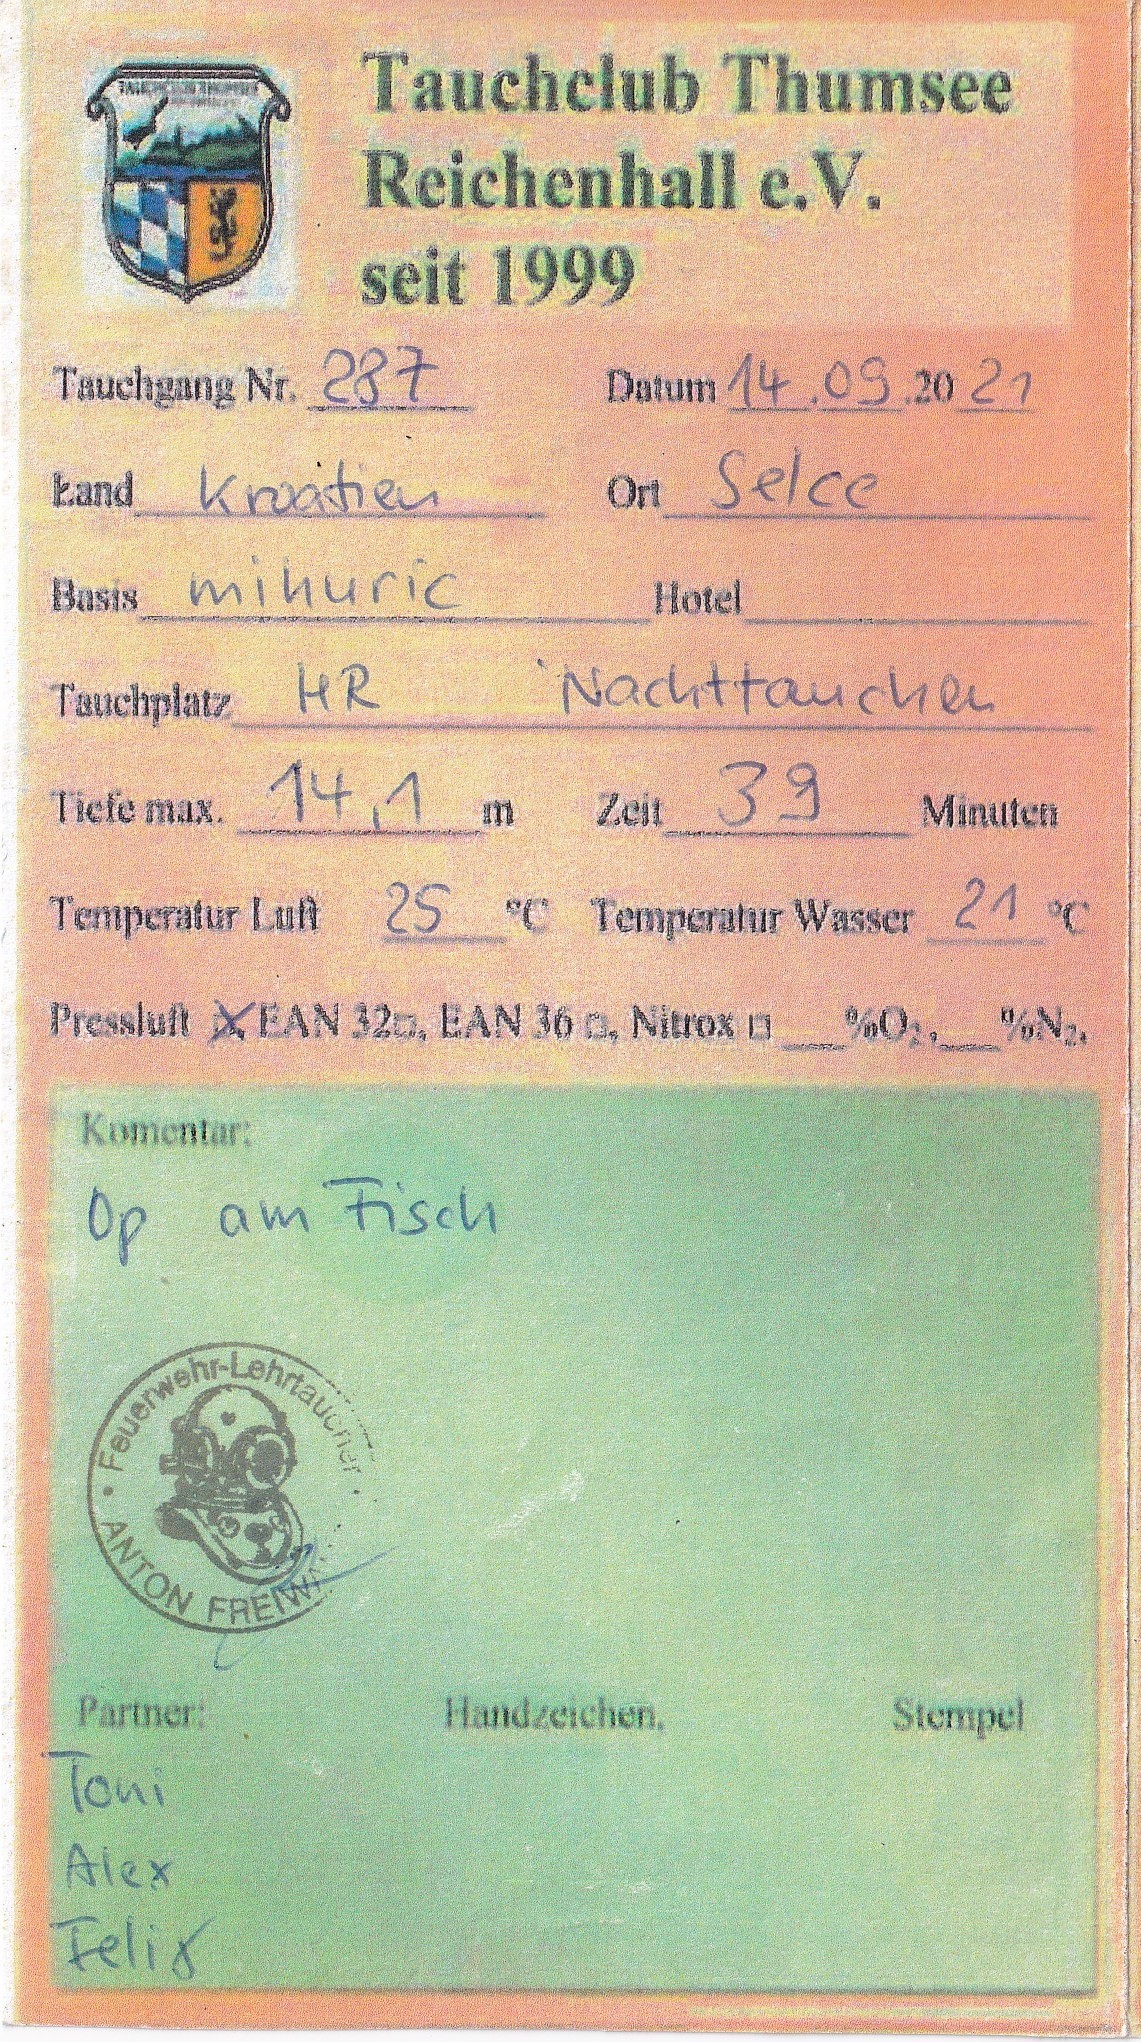 TAUCHCLUB THUMSEE
Tauchclub Thumsee
Reichenhall e.V.
seit 1999
Tauchgang Nr. 287 Datum 14.09.2021
Land Kroatien Ort Selce
Basis mihuric Hotel
Tauchplatz HR Nachttauchen
Tiefe max. 14,1 m Zeit 39 Minuten
Temperatur Luft 25 °C Temperatur Wasser 21 °C
Pressluft X, EAN 32□, EAN 36 □, Nitrox □ ___%O₂, ___%N₂,
Komentar:
Op am Fisch
Feuerwehr-Lehrtaucher
ANTON
Partner: Handzeichen. Stempel
Toni
Alex
Felix